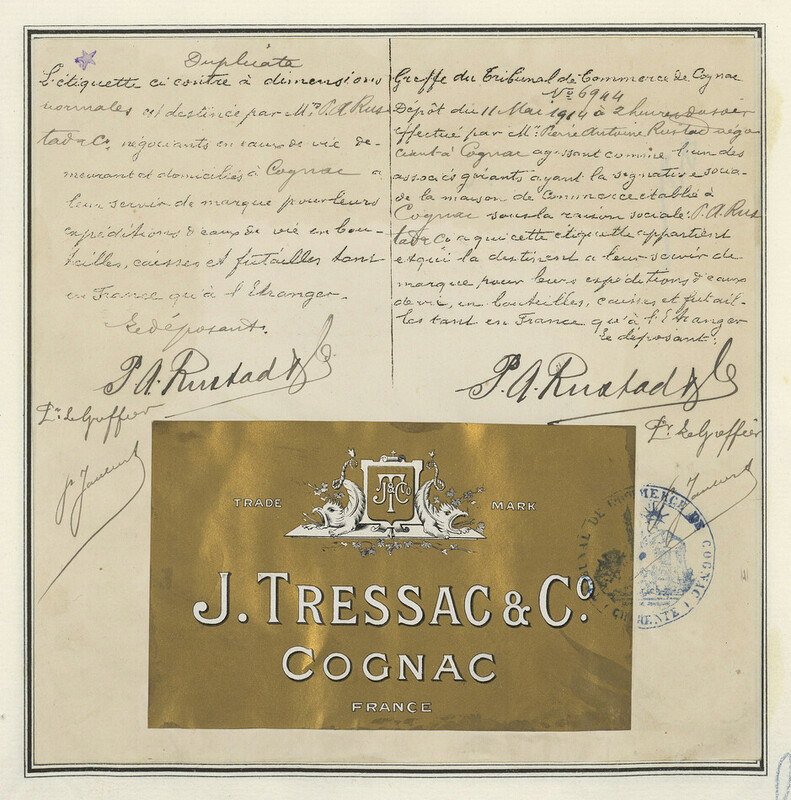 Duplicata
L'étiquette ci contre à dimensions
normales est destinée par Mrs P. A. Rus
tad & Co négociants en eaux de vie de-
meurant et domiciliés à Cognac a
leur servir de marque pour leurs
expéditions d'eaux de vie en bou-
teilles, caisses et futailles tant
en France qu'à l'Etranger.
Le déposant.
P. A. Rustad & Co
Pr. Le Greffier
Greffe du Tribunal de Commerce de Cognac
No 6944
Dépôt du 11 Mai 1914 à 2 heures du soir
effectué par Mr. Pierre Antoine Rustad négo
ciant à Cognac agissant comme l'un des
associés gérants ayant la signature socia-
le de la maison de Commerce établie à
Cognac sous la raison sociale: P. A. Rus
tad & Co a qui cette étiquette appartient
et qui la destinent a leur servir de
marque pour leurs expéditions d'eaux
de vie, en bouteilles, caisses et futail-
les tant en France qu'à l'Etranger
Le déposant:
P. A. Rustad & Co
Pr. Le Greffier
TRADE MARK
J T & Co
J. TRESSAC & Co.
COGNAC
FRANCE
TRIBUNAL DE COMMERCE DE COGNAC
CHARENTE